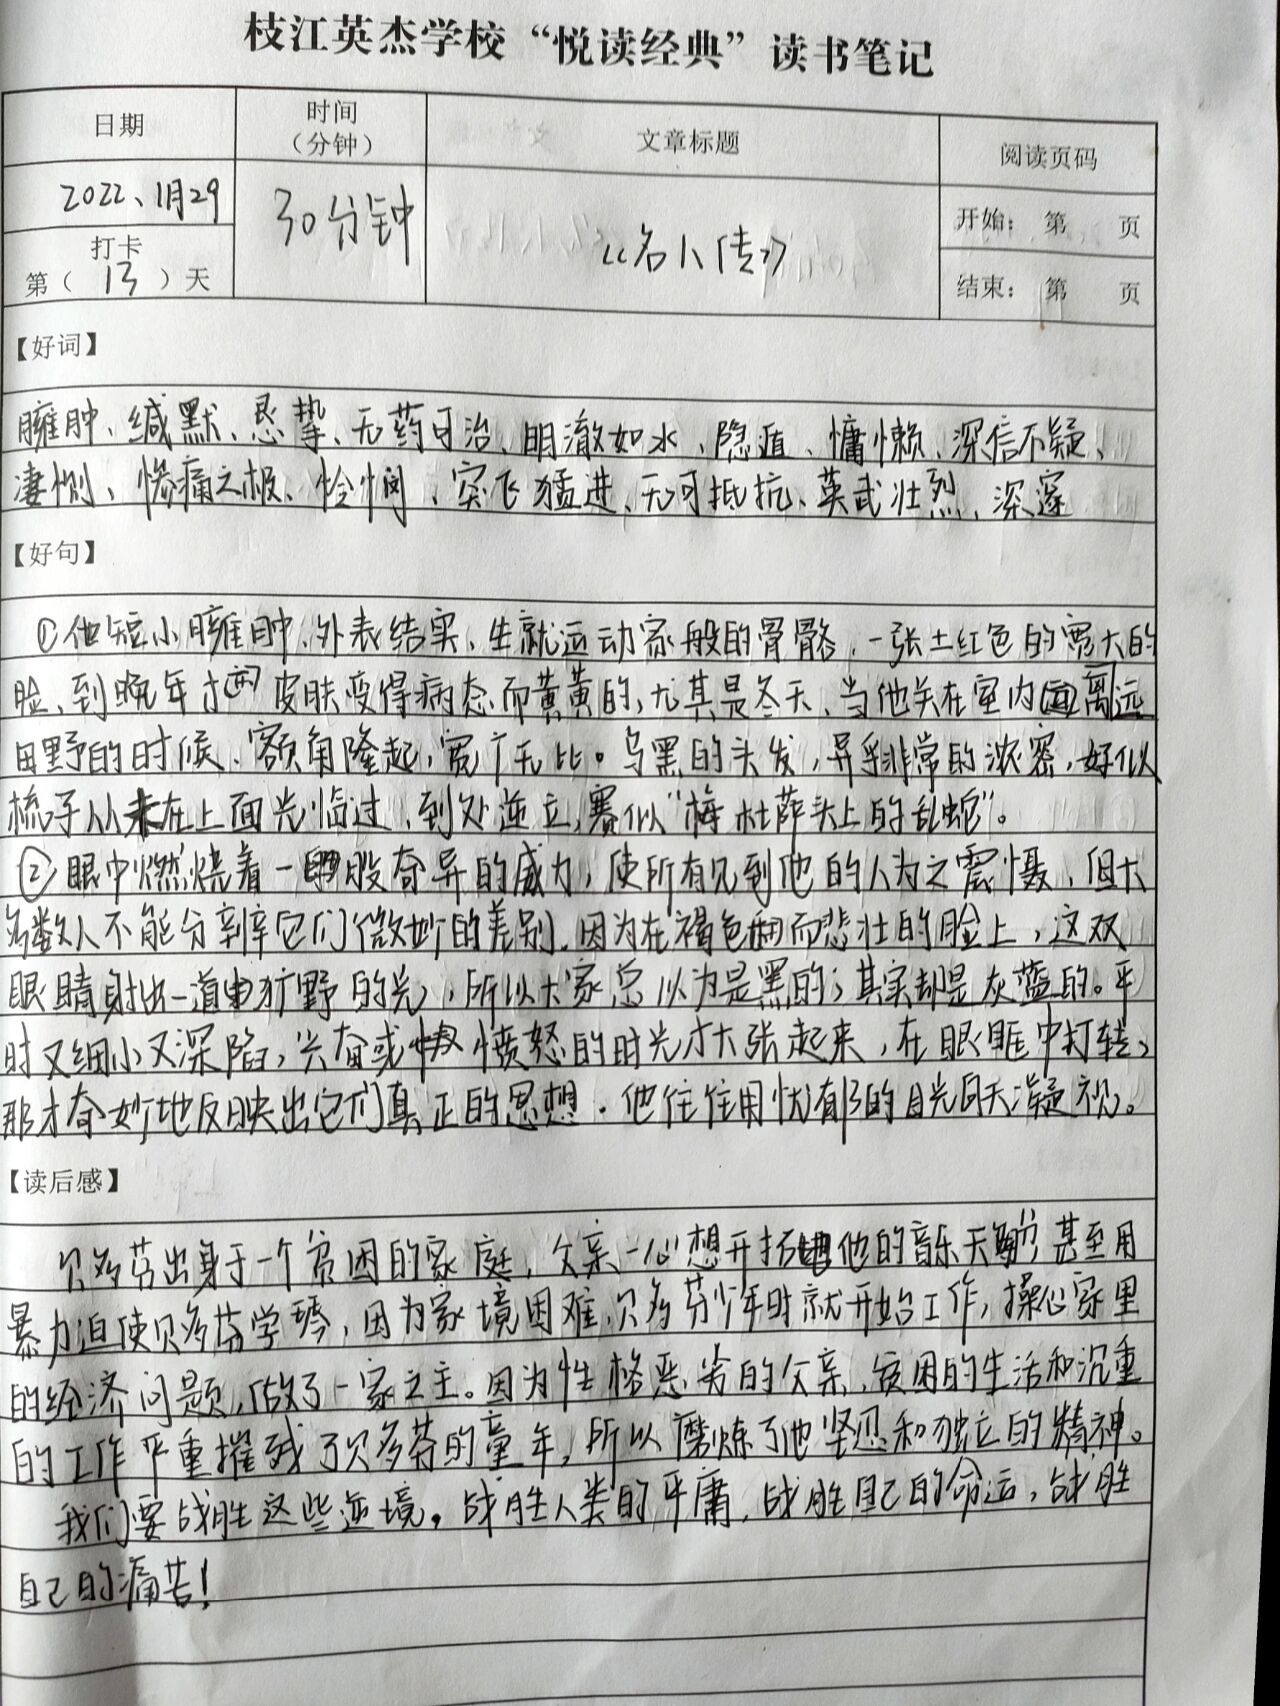 枝江英杰学校“悦读经典”读书笔记
日期
时间
（分钟）
文章标题
阅读页码
2022、1月29
30分钟
《名人传》
开始： 第 页
打卡
第（ 13 ）天
结束： 第 页
【好词】
臃肿、缄默、恳挚、无药可治、明澈如水、隐遁、慵懒、深信不疑、
凄恻、惨痛之极、怜悯、突飞猛进、无可抵抗、英武壮烈、深邃
【好句】
①他短小臃肿、外表结实，生就运动家般的骨骼，一张土红色的宽大的
脸，到晚年才 皮肤变得病态而黄黄的，尤其是冬天，当他关在室内 离远
田野的时候、额角隆起，宽广无比。乌黑的头发，异乎非常的浓密，好似
梳子从未在上面光临过，到处逆立，赛似“梅杜萨头上的乱蛇”。
②眼中燃烧着一股奇异的威力，使所有见到他的人为之震慑，但大
多数人不能分辨它们微妙的差别，因为在褐色 而悲壮的脸上，这双
眼睛射出一道 犷野的光，所以大家总以为是黑的；其实却是灰蓝的。平
时又细小又深陷，兴奋或 愤怒的时光才大张起来，在眼眶中打转，
那才奇妙地反映出它们真正的思想。他往往用忧郁的目光向天凝视。
【读后感】
贝多芬出身于一个贫困的家庭，父亲一心想开拓 他的音乐天 甚至用
暴力迫使贝多芬学琴，因为家境困难，贝多芬少年时就开始工作，操心家里
的经济问题，做了一家之主。因为性格恶劣的父亲，贫困的生活和沉重
的工作严重摧残了贝多芬的童年，所以磨炼了他坚忍和独立的精神。
我们要战胜这些逆境，战胜人类的平庸，战胜自己的命运，战胜
自己的痛苦！